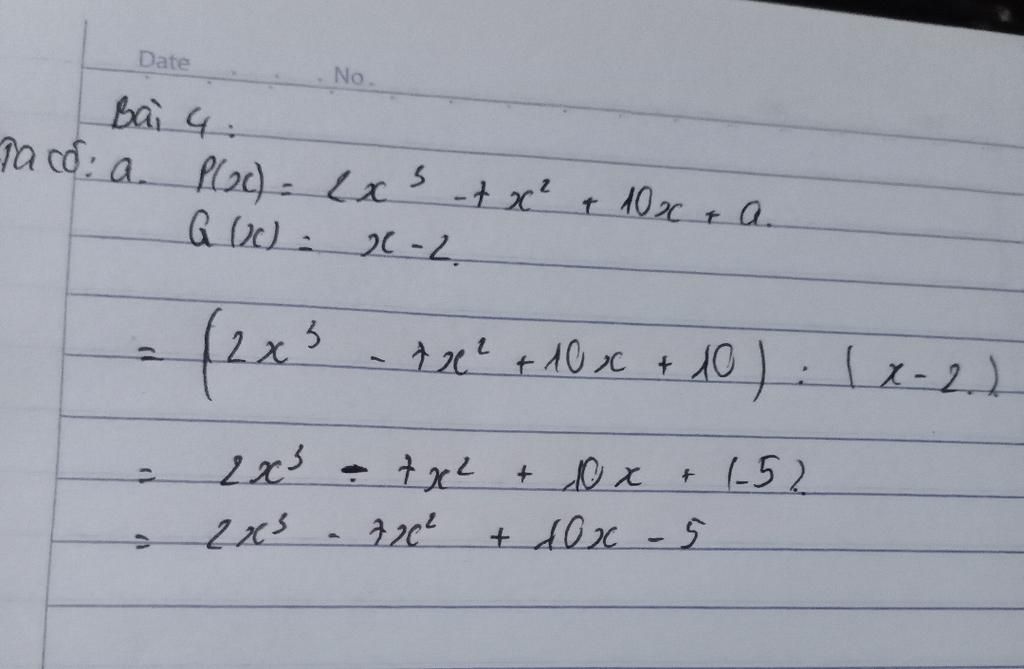 Date . . . . No.
Bài 4:
Ta có: a. P(x) = 2x³ - 7x² + 10x + a.
Q(x) = x - 2.
= (2x³ - 7x² + 10x + 10) : (x - 2.)
= 2x³ - 7x² + 10x + (-5)
= 2x³ - 7x² + 10x - 5